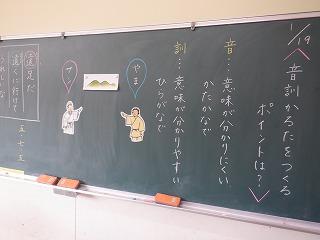 1/19
音訓かるたをつくる
ポイントは?
音…意味が分かりにくい
かたかなで
訓…意味が分かりやすい
ひらがなで
やま
サン
遠足だ
遠くに行けて
うれしいな
五・七・五